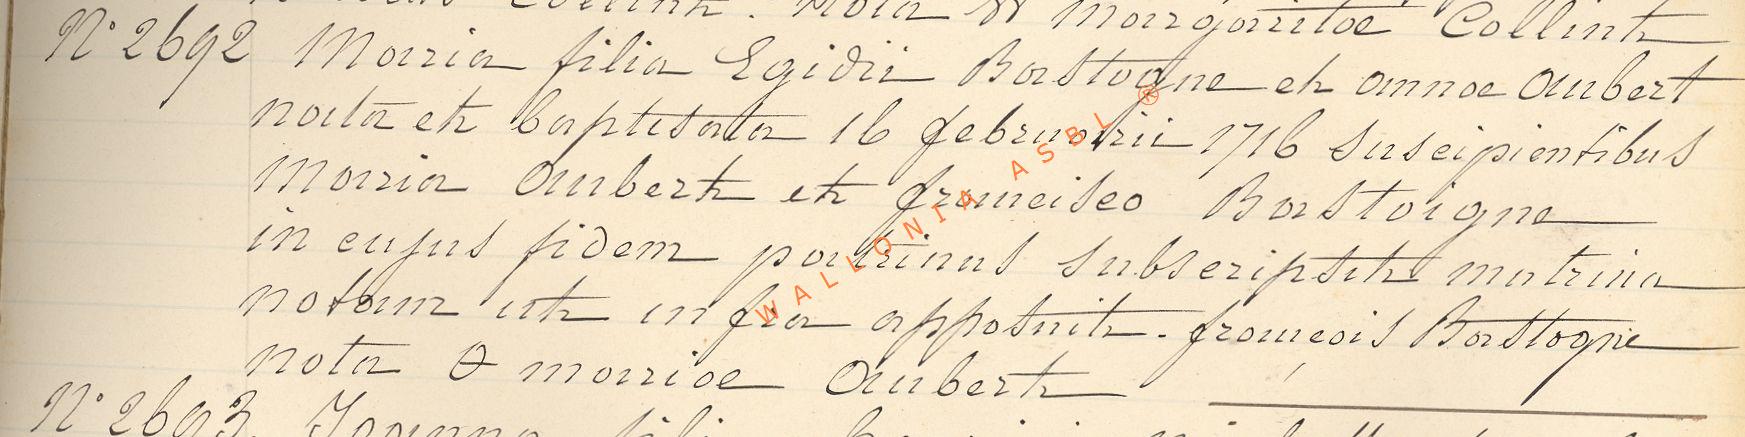 Collink. Nota Margaritae Collink
N° 2692 Maria filia Egidii Bastogne et annae Aubert
nata et baptisata 16 februarii 1716 suscipientibus
Maria Aubert et francisco Bastoigne
in cujus fidem patrinus subscripsit matrina
notam ut infra apposuit. francois Bastogne
nota θ mariae Aubert
N° 2693. Joanna filia
WALLONIA ASBL ®